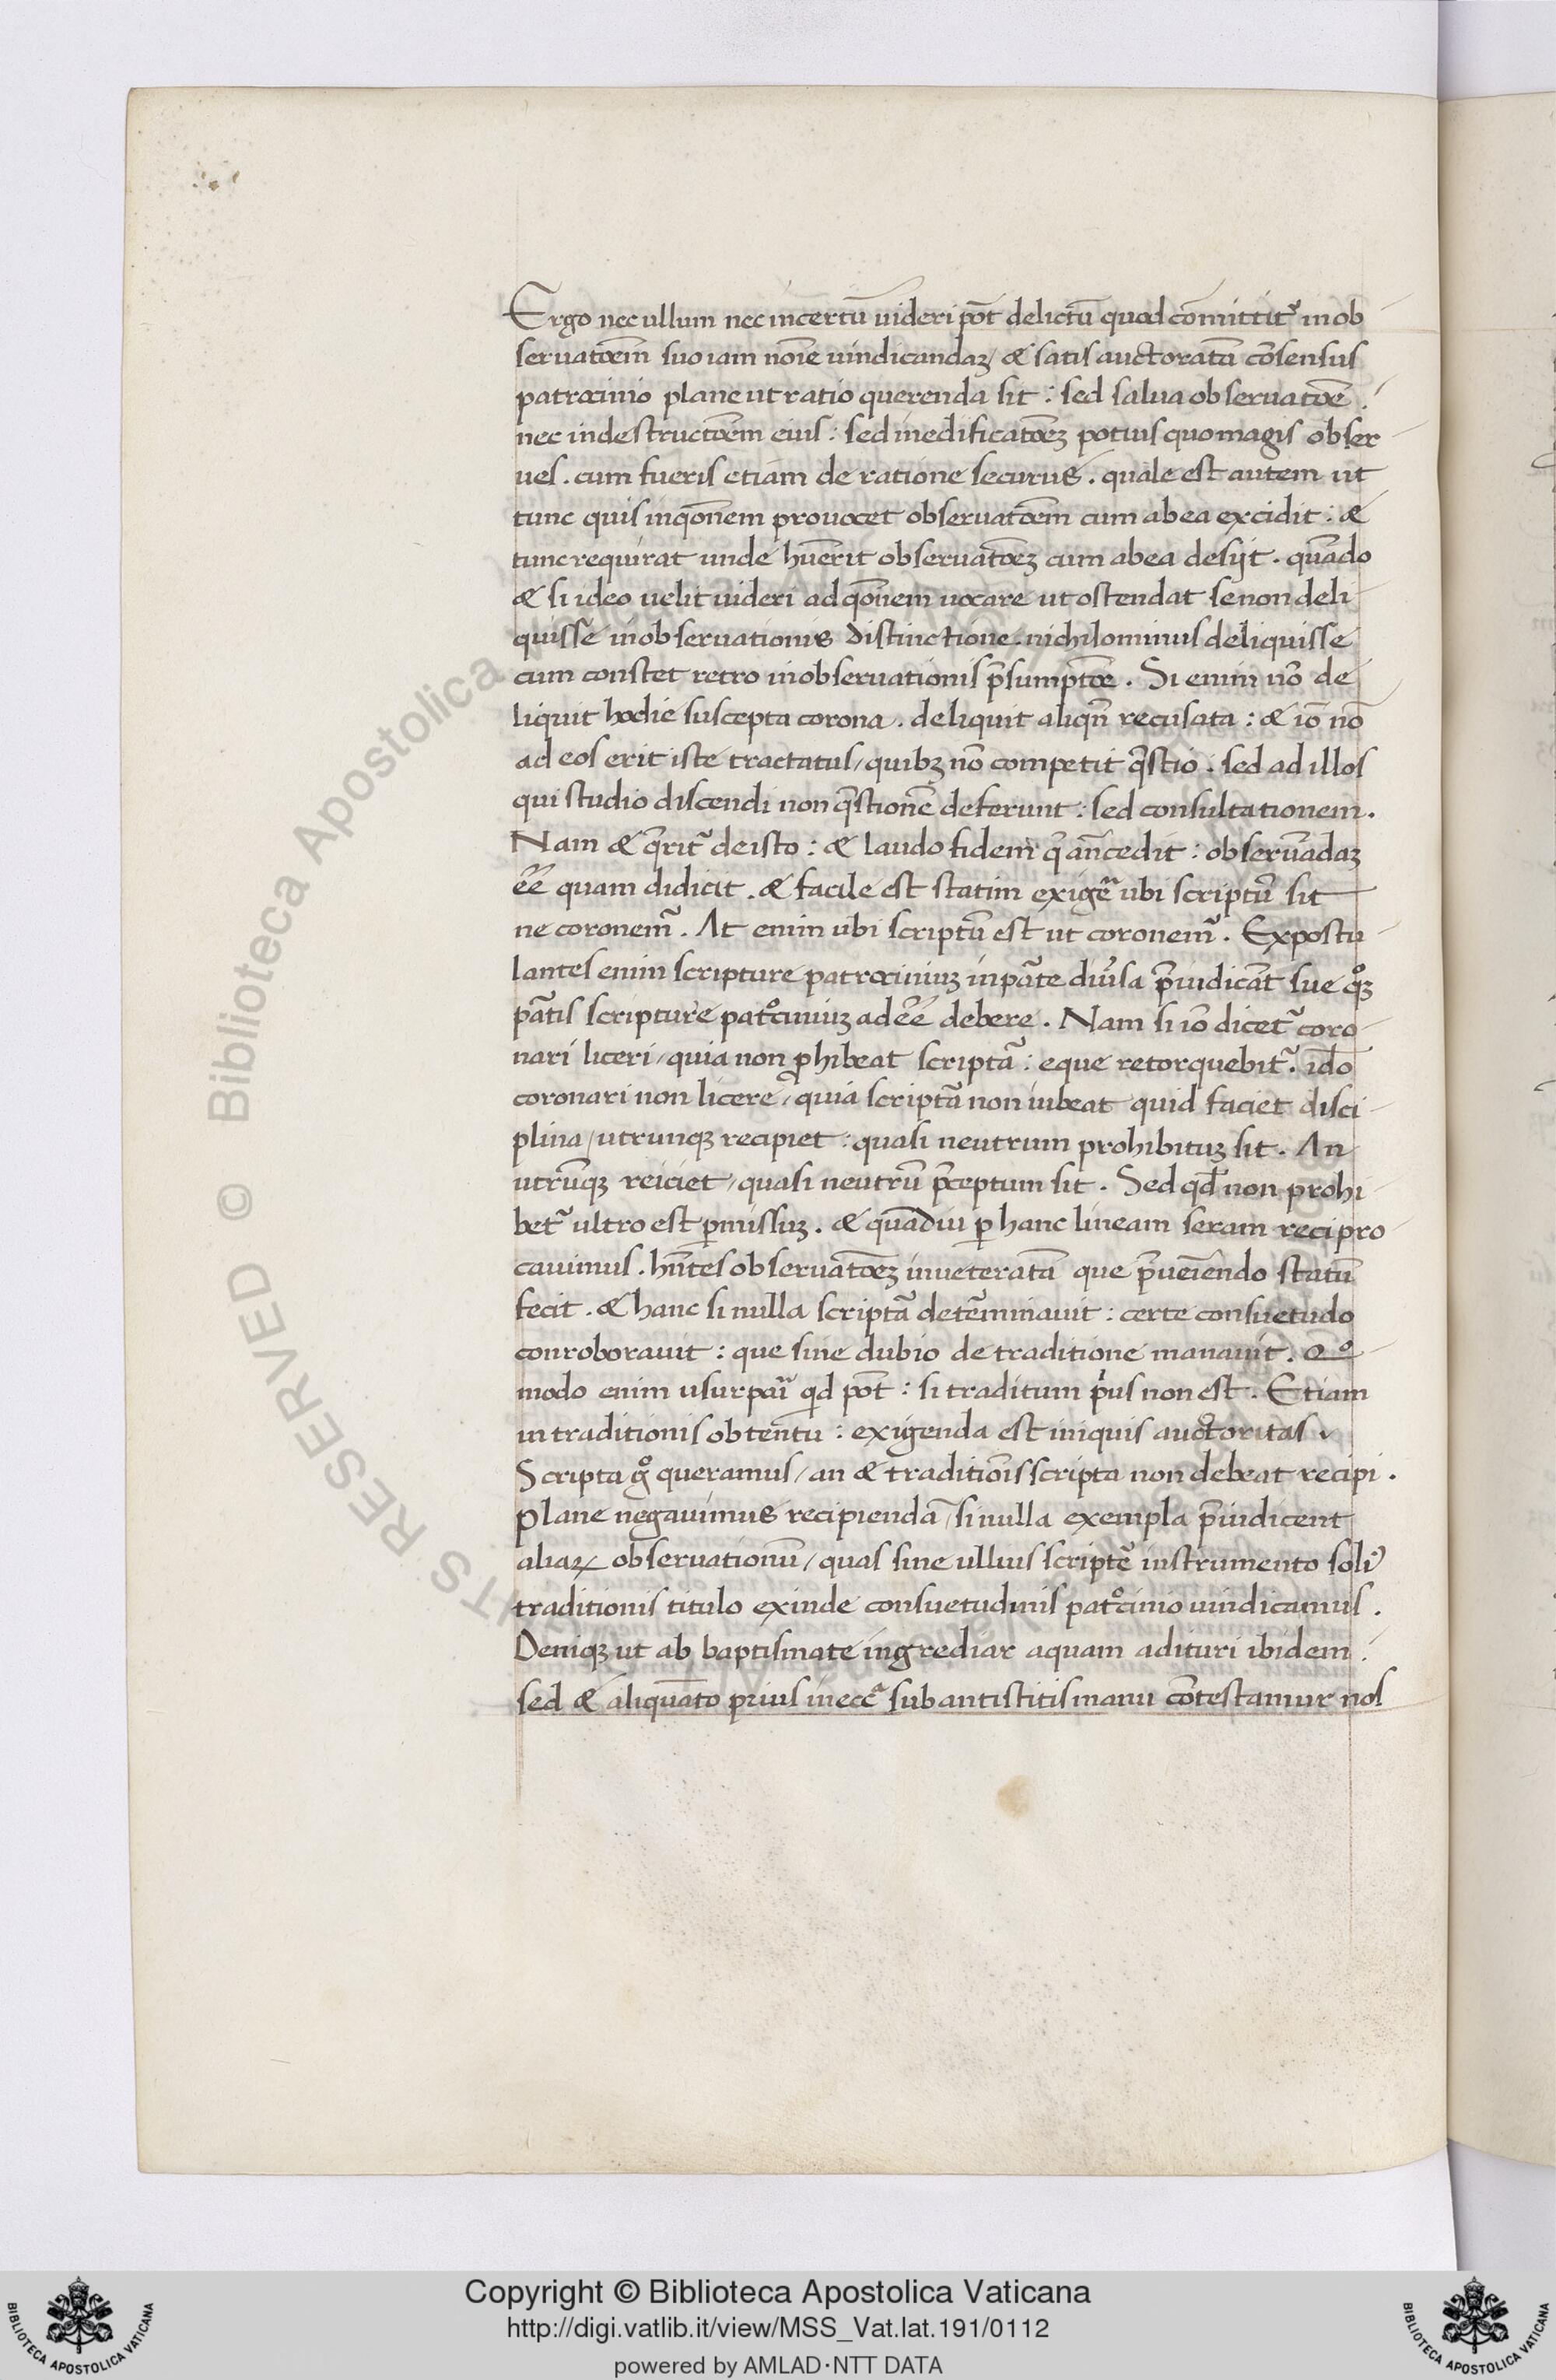 Ergo nec ullum nec incertū uideri põt delictū quod cõmittit᷑ in ob
seruatõem suo iam noĩe uindicandaꝫ / & satis auctoratā cõsensus
patrocinio plane ut ratio querenda sit : sed salua obseruatõe .
nec in destructõem eius : sed in edificatõeꝫ potius quo magis obser
ues . cum fueris etiam de ratione securus . quale est autem ut
tunc quis in qõnem prouocet obseruatõem cum ab ea excidit : &
tunc requirat unde hũerit obseruatõeꝫ cum ab ea desijt . quãdo
& si ideo uelit uideri ad qõnem uocare ut ostendat se non deli
quisse in obseruationis distinctione . nichilominus deliquisse
cum constet retro in obseruationis p̃sumptõe . Si enim nõ de
liquit hodie suscepta corona . deliquit aliqñ recusata : & iõ nõ
ad eos erit iste tractatus / quibꝫ nõ competit q̃stio . sed ad illos
qui studio discendi non q̃stionẽ deferunt : sed consultationem .
Nam & q̃rit᷑ de isto : & laudo fidem q̃ añcedit : obseruãdaꝫ
eẽ quam didicit . & facile est statim exigẽ ubi scriptũ sit
ne coronem᷑ . At enim ubi scriptũ est ut coronem᷑ . Expostu
lantes enim scripture patrociniuꝫ in pãte diũsa p̃iudicãt sue q̊ꝫ
pãtis scripture patᵒciniuꝫ adeẽ debere . Nam si iõ dicet᷑ coro
nari liceri / quia non ꝓhibeat scriptã : eque retorquebit᷑ . iđo
coronari non licere / quia scriptã non iubeat quid faciet disci
plina / utrunqꝫ recipiet : quasi neutrum prohibituꝫ sit . An
utrũqꝫ reiciet / quasi neutrũ p̃ceptum sit . Sed qđ non prohi
bet᷑ ultro est ꝑmissuꝫ . & quãdiu ꝑ hanc lineam seram recipro
cauimus . hñtes obseruatõeꝫ inueteratã que p̃ueĩendo statũ
fecit . & hanc si nulla scriptã detẽminauit : certe consuetudo
conroborauit : que sine dubio de traditione manauit . Qᵒ
modo enim usurpaĩ qđ põt : si traditum pⁱus non est . Etiam
in traditionis obtentu : exigenda est iniquis auctoritas
Scripta gᵒ queramus / an & traditiõis scripta non debeat recipi .
Plane negauimus recipiendã / si nulla exempla p̃iudicent
aliaꝝ obseruationũ / quas sine ullius scriptẽ instrumento soliꝰ
traditionis titulo exinde consuetudinis patᵒcinio uindicamus .
Deniqꝫ ut ab baptismate ingrediar aquam adituri ibidem .
sed & aliquãto prius in eccᵃ sub antistitis manu cõtestamur nos
© Biblioteca Apostolica
RESERVED
Copyright © Biblioteca Apostolica Vaticana
http://digi.vatlib.it/view/MSS_Vat.lat.191/0112
powered by AMLAD·NTT DATA
BIBLIOTECA APOSTOLICA VATICANA
BIBLIOTECA APOSTOLICA VATICANA